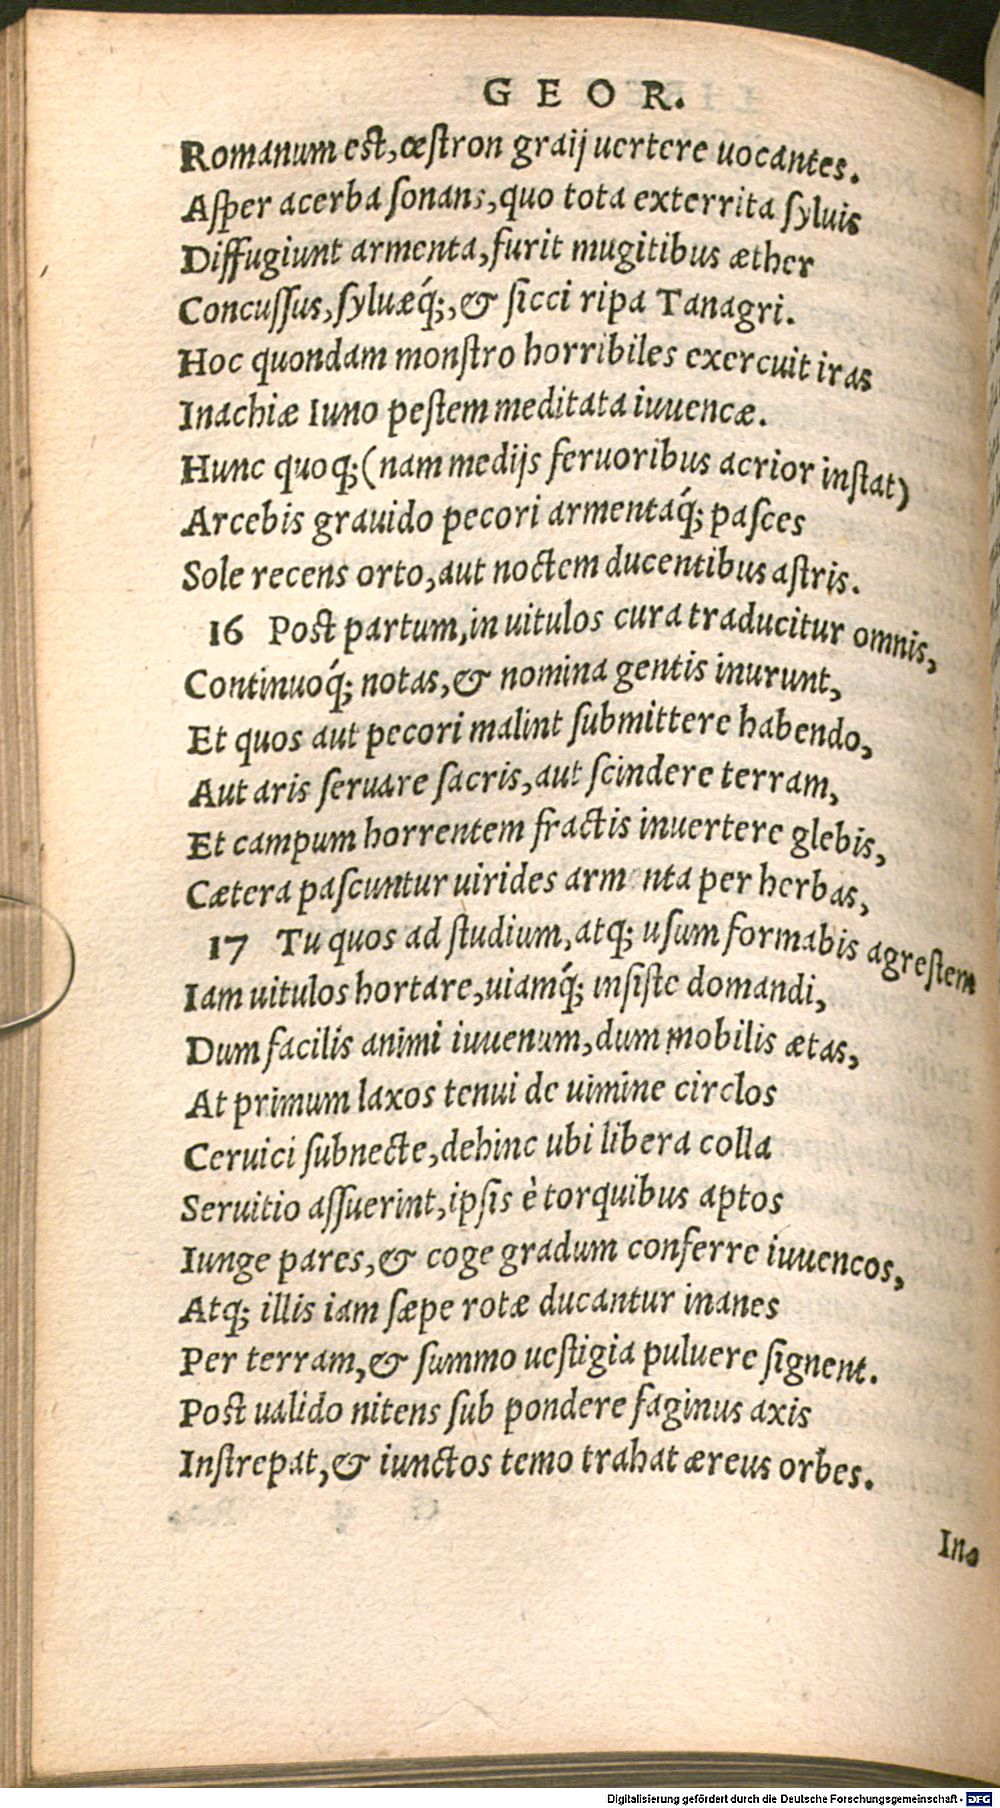 GEOR.
Romanum est, œstron graij uertere uocantes.
Aſper acerba ſonans, quo tota exterrita ſyluis
Diffugiunt armenta, furit mugitibus æther
Concuſſus, ſyluæq́;, & ſicci ripa Tanagri.
Hoc quondam monſtro horribiles exercuit iras
Inachiæ Iuno peſtem meditata iuuencæ.
Hunc quoq; (nam medijs feruoribus acrior inſtat)
Arcebis grauido pecori armentaq́; paſces
Sole recens orto, aut noctem ducentibus aſtris.
16 Post partum, in uitulos cura traducitur omnis,
Continuoq́; notas, & nomina gentis inurunt,
Et quos aut pecori malint ſubmittere habendo,
Aut aris ſeruare ſacris, aut ſcindere terram,
Et campum horrentem fractis inuertere glebis,
Cætera paſcuntur uirides armenta per herbas,
17 Tu quos ad ſtudium, atq; uſum formabis agreſtem
Iam uitulos hortare, uiamq́; inſiſte domandi,
Dum facilis animi iuuenum, dum mobilis ætas,
At primum laxos tenui de uimine circlos
Ceruici ſubnecte, dehinc ubi libera colla
Seruitio aſſuerint, ipſis è torquibus aptos
Iunge pares, & coge gradum conferre iuuencos,
Atq; illis iam ſæpe rotæ ducantur inanes
Per terram, & ſummo ueſtigia puluere ſignent.
Post ualido nitens ſub pondere faginus axis
Inſtrepat, & iunctos temo trahat æreus orbes.
Digitalisierung gefördert durch die Deutsche Forschungsgemeinschaft - DFG